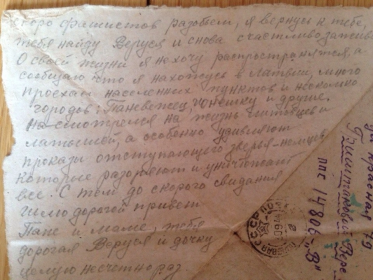 скоро фашистов разобьем, я вернусь к тебе,
тебя найду Веруся и снова счастливо заживем
О своей жизни я не хочу распространятся, а
сообщаю, что я нахожусь в Латвии, много
проехал населенных пунктов и несколько
городов: Паневежец, и другие.
Насмотрелся на жизнь литовцев и
латышей, а особенно удивляют
проказы отступающего зверья-немцев
которые разоряют и уничтожают
все. С тем до скорого свидания
шлю дорогой привет
Папе и маме, тебя
дорогая Веруся и дочку
целую несчетно раз
79
Вере
ппс 14806 "В"